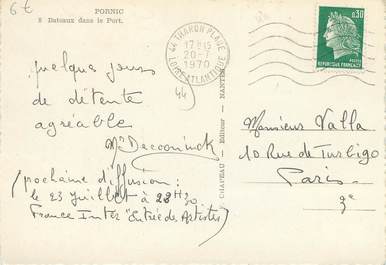 6€
PORNIC
8 Bateaux dans le Port.
44 THARON PLAGE
17H15
20-7
1970
LOIRE ATLANTIQUE
0,30
POSTES
REPUBLIQUE FRANÇAISE
44
quelques jours
de détente
agréable
M. Decconinck
(prochaine diffusion :
le 23 Juillet à 23H30
France Inter "Entrée des Artistes")
CHAPEAU - Editeur - NANTES
Monsieur Valla
10 Rue de Turbigo
Paris